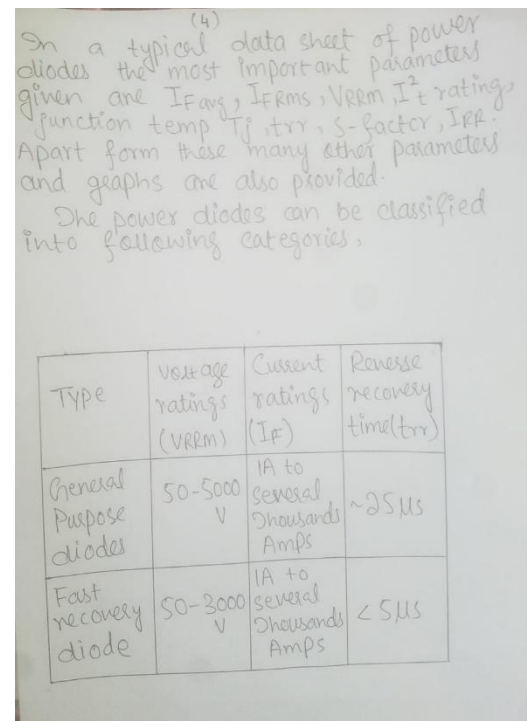 (4)
In a typical data sheet of power
diodes the most important parameters
given are IFavg, IFRms, VRRM, I²t rating,
junction temp Tj, trr, S-factor, IRR.
Apart form these many other parameters
and graphs are also provided.
The power diodes can be classified
into following categories,
Type
Voltage ratings (VRRM)
Current ratings (IF)
Reverse recovery time(trr)
General Purpose diodes
50-5000 V
1A to several Thousands Amps
~25μs
Fast recovery diode
50-3000 V
1A to several Thousands Amps
<5μs